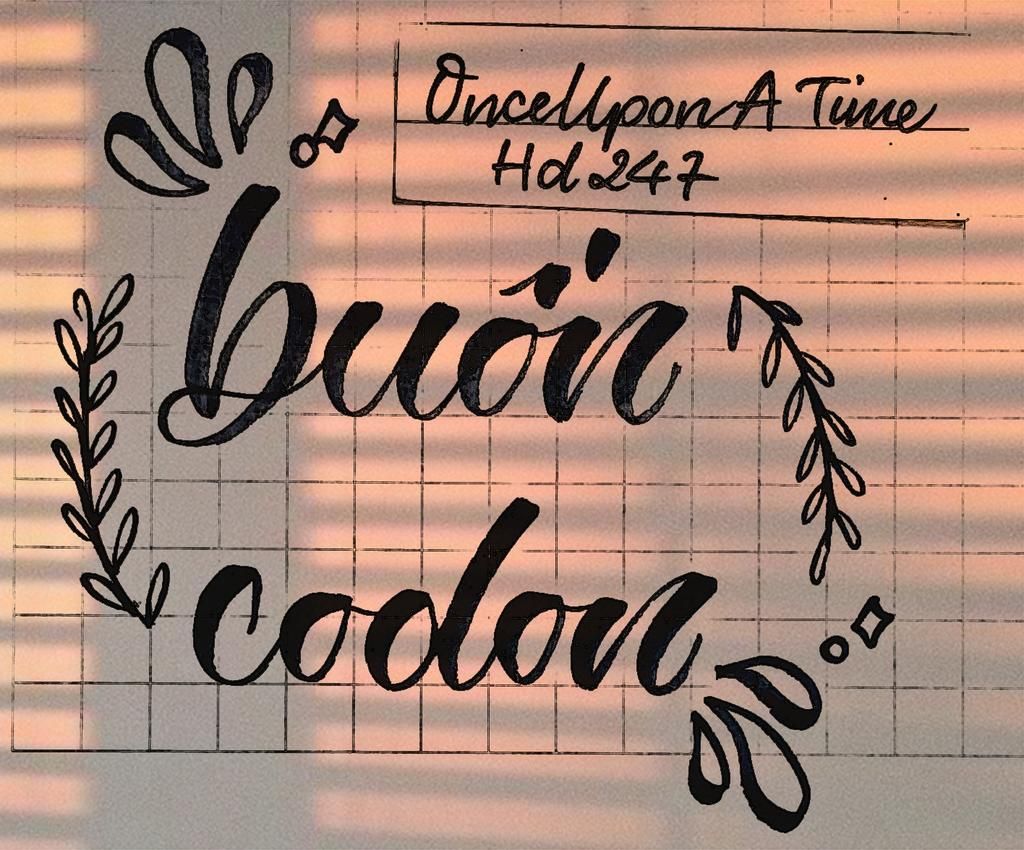 OnceUpon A Time
Hd 247
buồn
codon